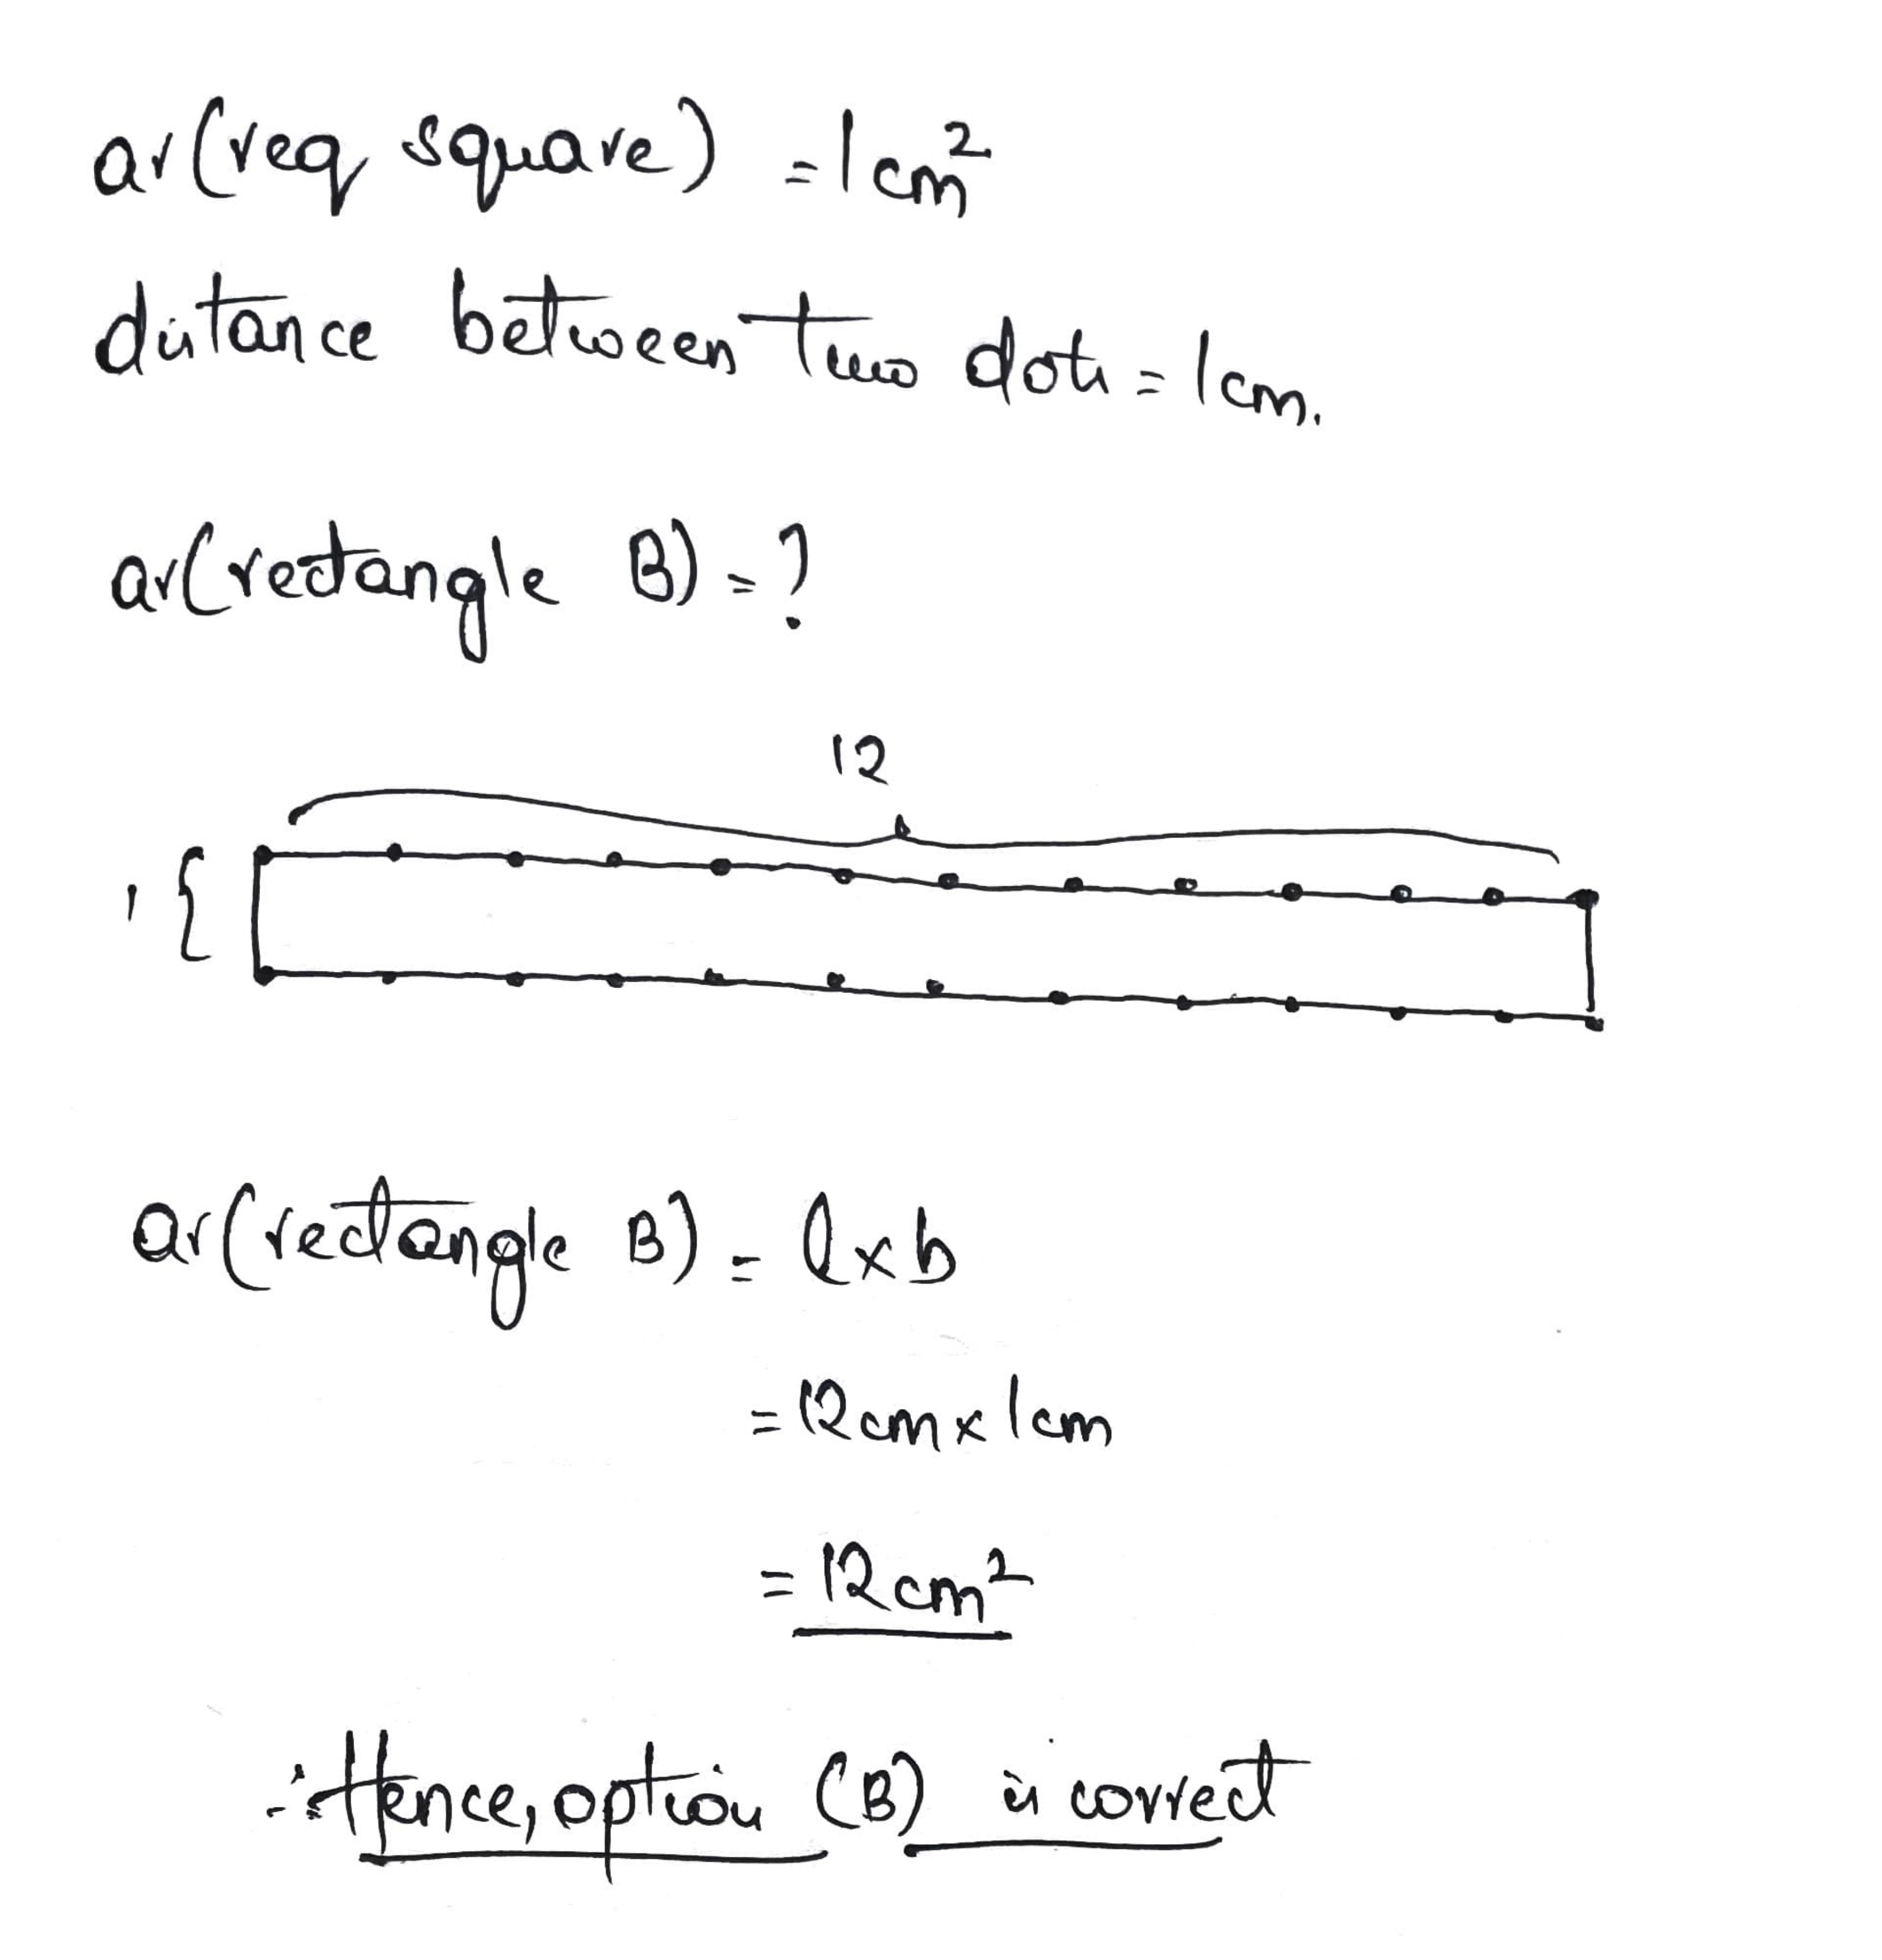 ar(req square) = 1cm²
distance between two dots = 1cm.
ar(rectangle B) = ?
12
1 {
ar(rectangle B) = l × b
= 12cm × 1cm
= 12cm²
∴ Hence, option (B) is correct